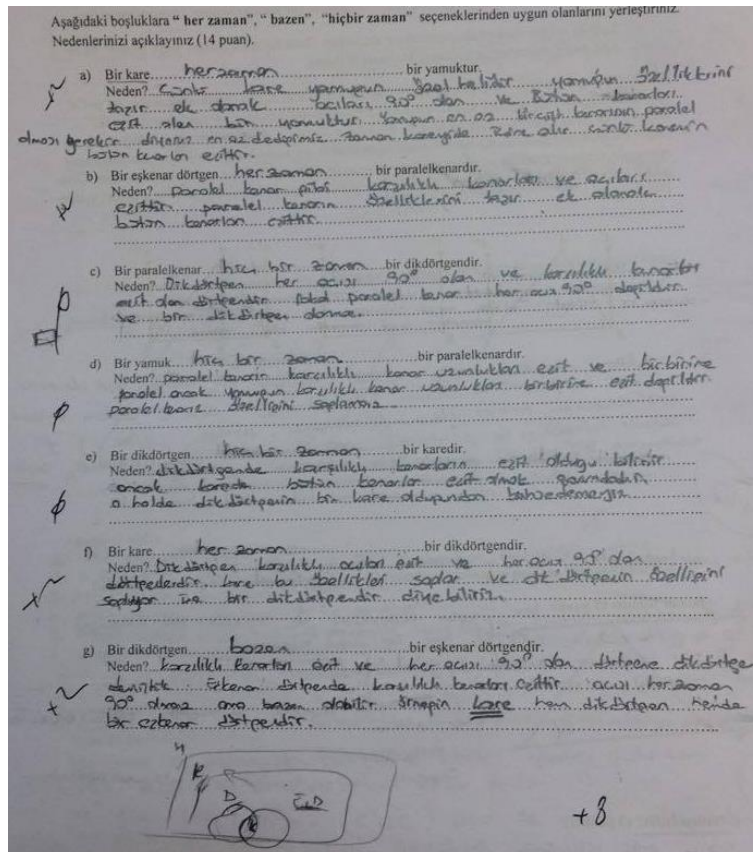 Aşağıdaki boşluklara “ her zaman”, “ bazen”, “hiçbir zaman” seçeneklerinden uygun olanlarını yerleştiriniz.
Nedenlerinizi açıklayınız (14 puan).
a) Bir kare herzaman bir yamuktur.
Neden? Çünkü kare yamuğun özel halidir yamuğun özelliklerini
taşır ek olarak açıları 90° olan ve bütün kenarları
eşit olan bir yamuktur. Yamuğun en az bir çift kenarının paralel
olması gerekir diyoruz en az dediğimiz zaman kareyide içine alır çünkü karenin
bütün kenarları eşittir.
b) Bir eşkenar dörtgen her zaman bir paralelkenardır.
Neden? paralel kenar gibi karşılıklı kenarları ve açıları
eşittir paralel kenarın özelliklerini taşır ek olarak
bütün kenarları eşittir.
c) Bir paralelkenar hiç bir zaman bir dikdörtgendir.
Neden? Dikdörtgen her açısı 90° olan ve karşılıklı kenarları
eşit olan dörtgendir fakat paralel kenar her açısı 90° değildir.
ve bir dikdörtgen olamaz.
d) Bir yamuk hiç bir zaman bir paralelkenardır.
Neden? paralel kenarın karşılıklı kenar uzunlukları eşit ve birbirine
paralel ancak yamuğun karşılıklı kenar uzunlukları birbirine eşit değildir.
paralel kenar özelliğini sağlamaz
e) Bir dikdörtgen hiç bir zaman bir karedir.
Neden? dikdörtgende karşılıklı kenarların eşit olduğu bilinir
ancak karede bütün kenarlar eşit olmak zorundadır.
o halde dikdörtgenin bir kare olduğundan bahsedemeyiz.
f) Bir kare her zaman bir dikdörtgendir.
Neden? Dikdörtgen karşılıklı açıları eşit ve her açısı 90° olan
dörtgenlerdir. kare bu özellikleri sağlar ve dikdörtgenin özelliğini
sağlıyor ise bir dikdörtgendir diyebiliriz.
g) Bir dikdörtgen bazen bir eşkenar dörtgendir.
Neden? karşılıklı kenarları eşit ve her açısı 90° olan dörtgene dikdörtgen
demiştik Eşkenar dörtgende karşılıklı kenarları eşittir açısı her zaman
90° olmaz ama bazen olabilir örneğin kare hem dikdörtgen hemde
bir eşkenar dörtgendir.
D
+8